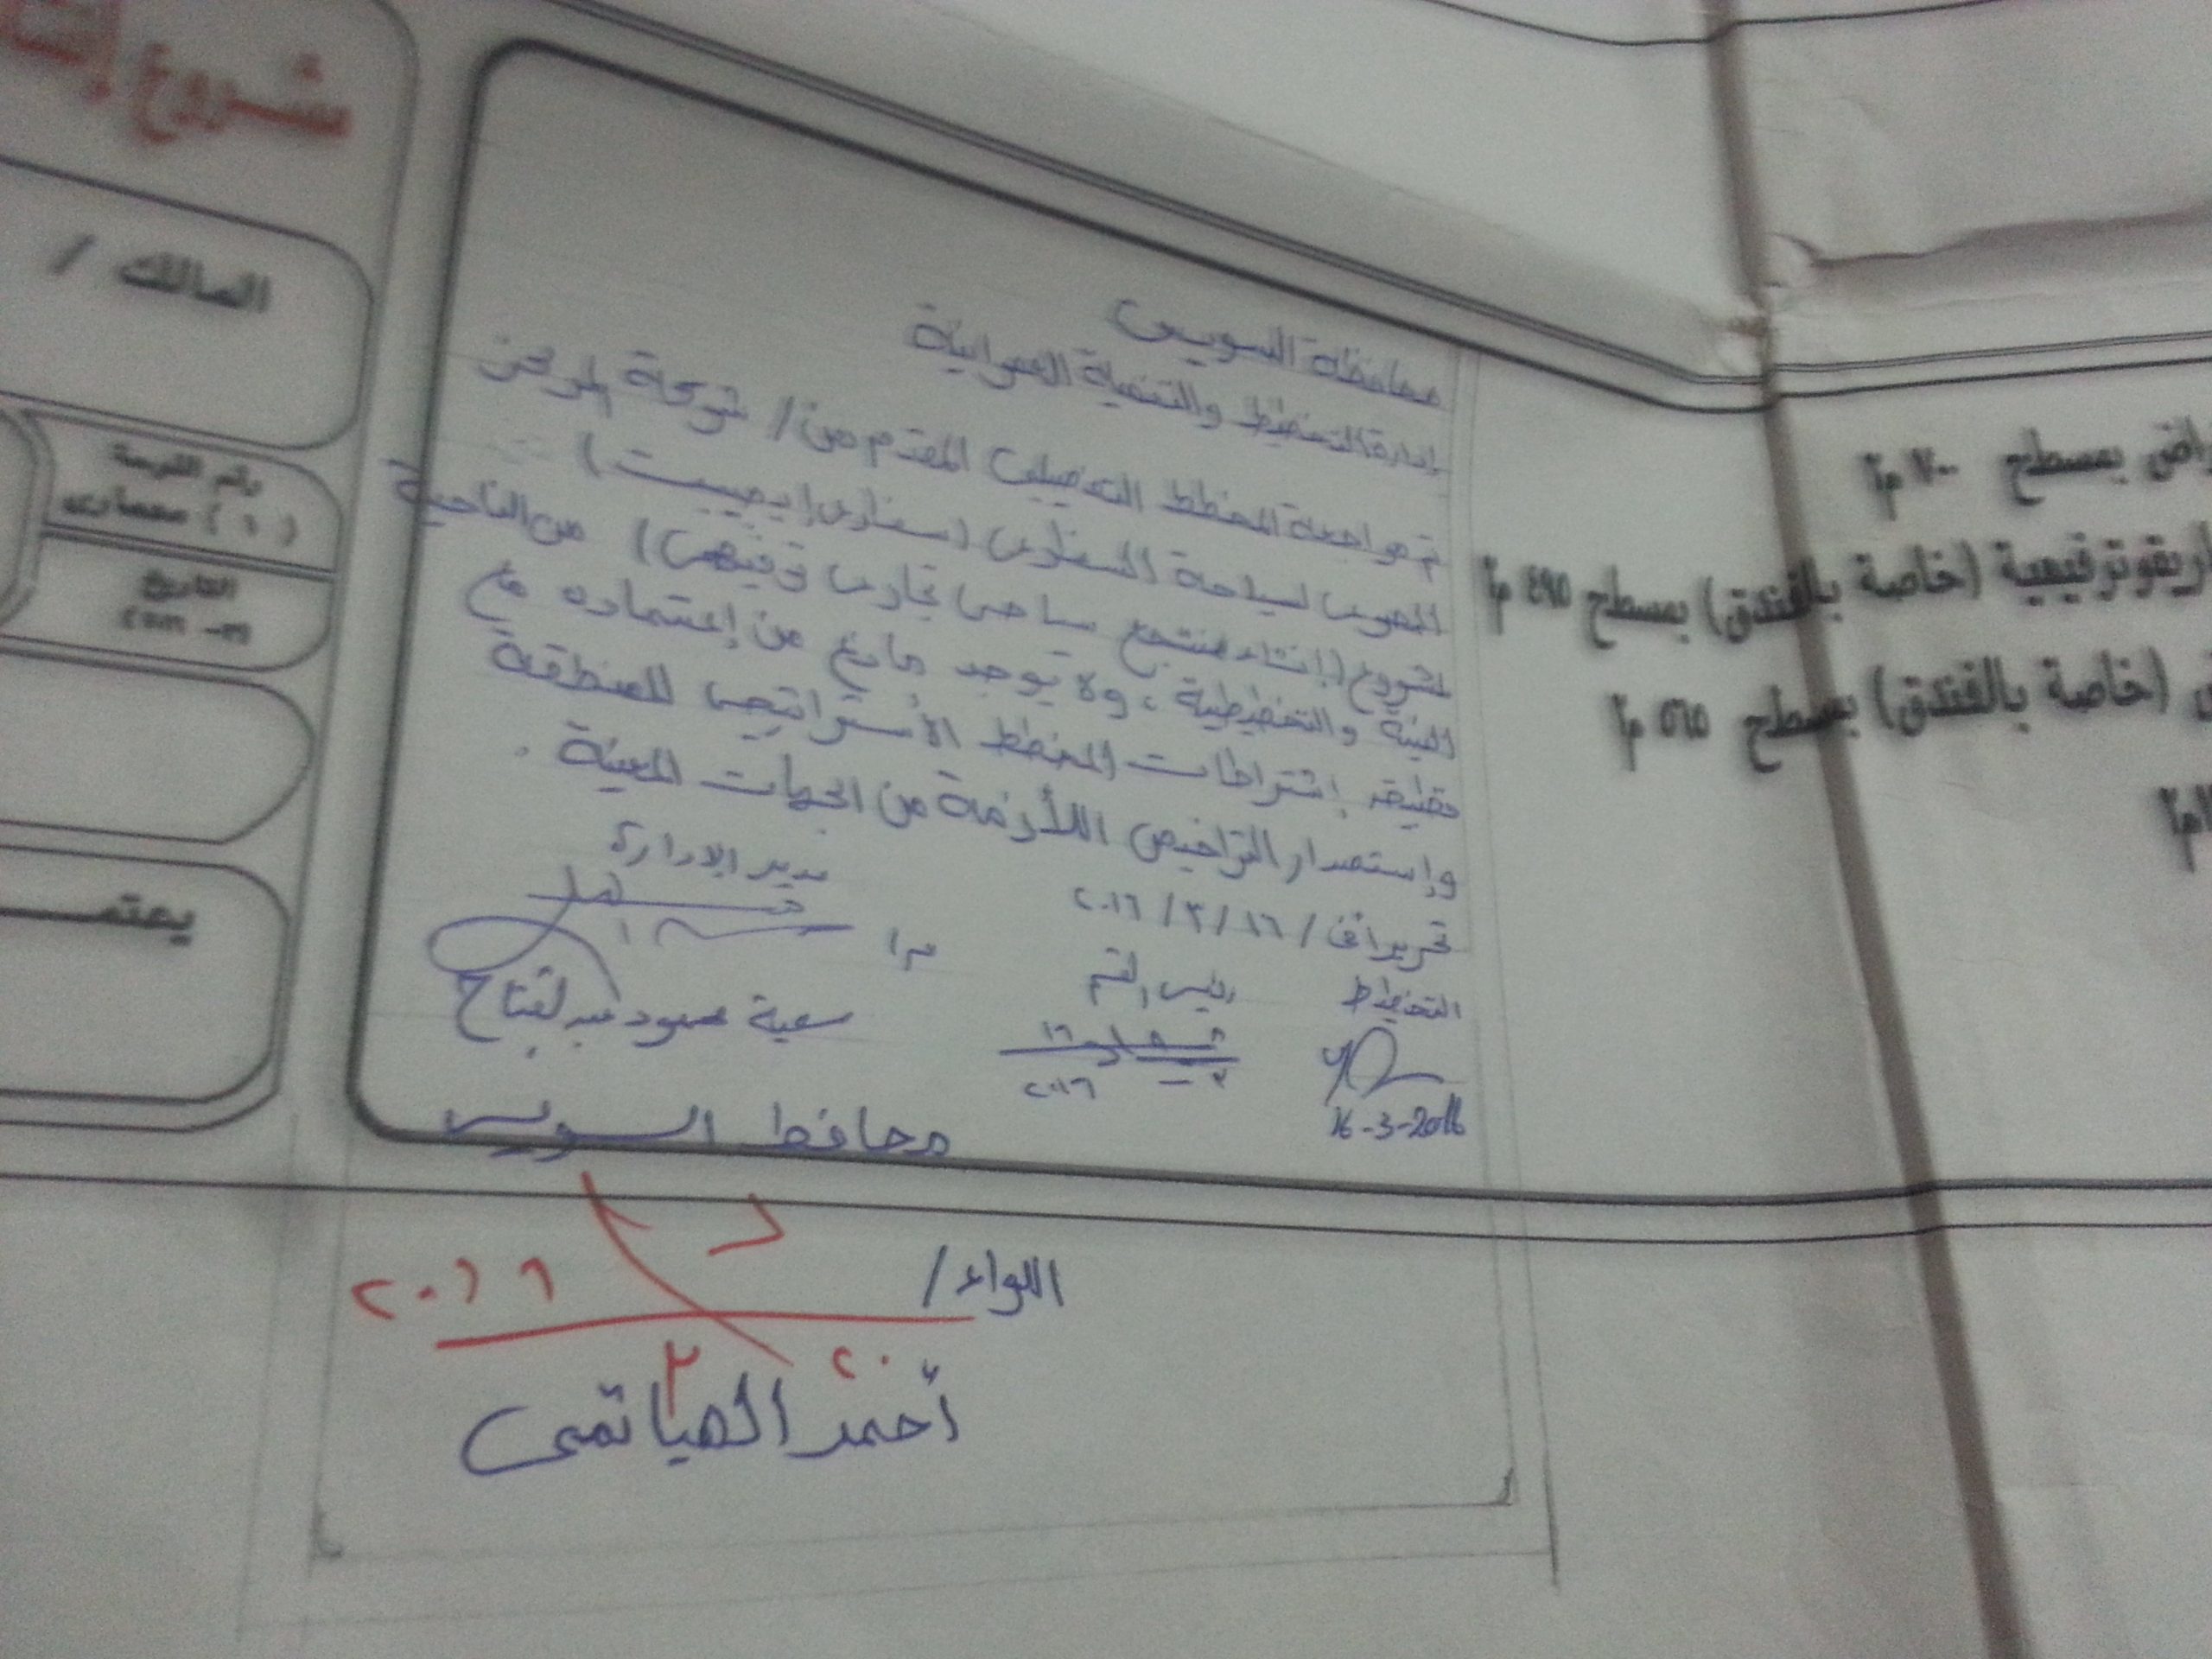 محافظة السويس
إدارة التخطيط والتنمية العمرانية
تم مراجعة المخطط التفصيلى المقدم من / شركة
المصرى لسياحة السفارى (سفارى إيجيبت)
لمشروع (إنشاء منتجع سياحى تجارى ترفيهى) من الناحية
الفنية والتخطيطية، ولا يوجد مانع من إعتماده مع
تطبيق إشتراطات المخطط الأستراتيجى للمنطقة
وإستصدار التراخيص اللأزمة من الجهات المعنية .
تحريراً فى / ١٦ / ٣ / ٢٠١٦
التخطيط
رئيس القسم
مدير الإدارة
١٦
٣
٢٠١٦
16-3-2016
سمية محمود عبد الفتاح
محافظ السويس
اللواء /
٢٠١٦
٢٠
٣
أحمد الهياتمى
مشروع
المالك /
رقم اللوحة
( ١ ) معمارى
التاريخ
يعتمـــ
بمسطح ٧٠٠ م٢
(خاصة بالفندق) بمسطح ٤٩٥ م٢
(خاصة بالفندق) بمسطح ٥٦٥ م٢